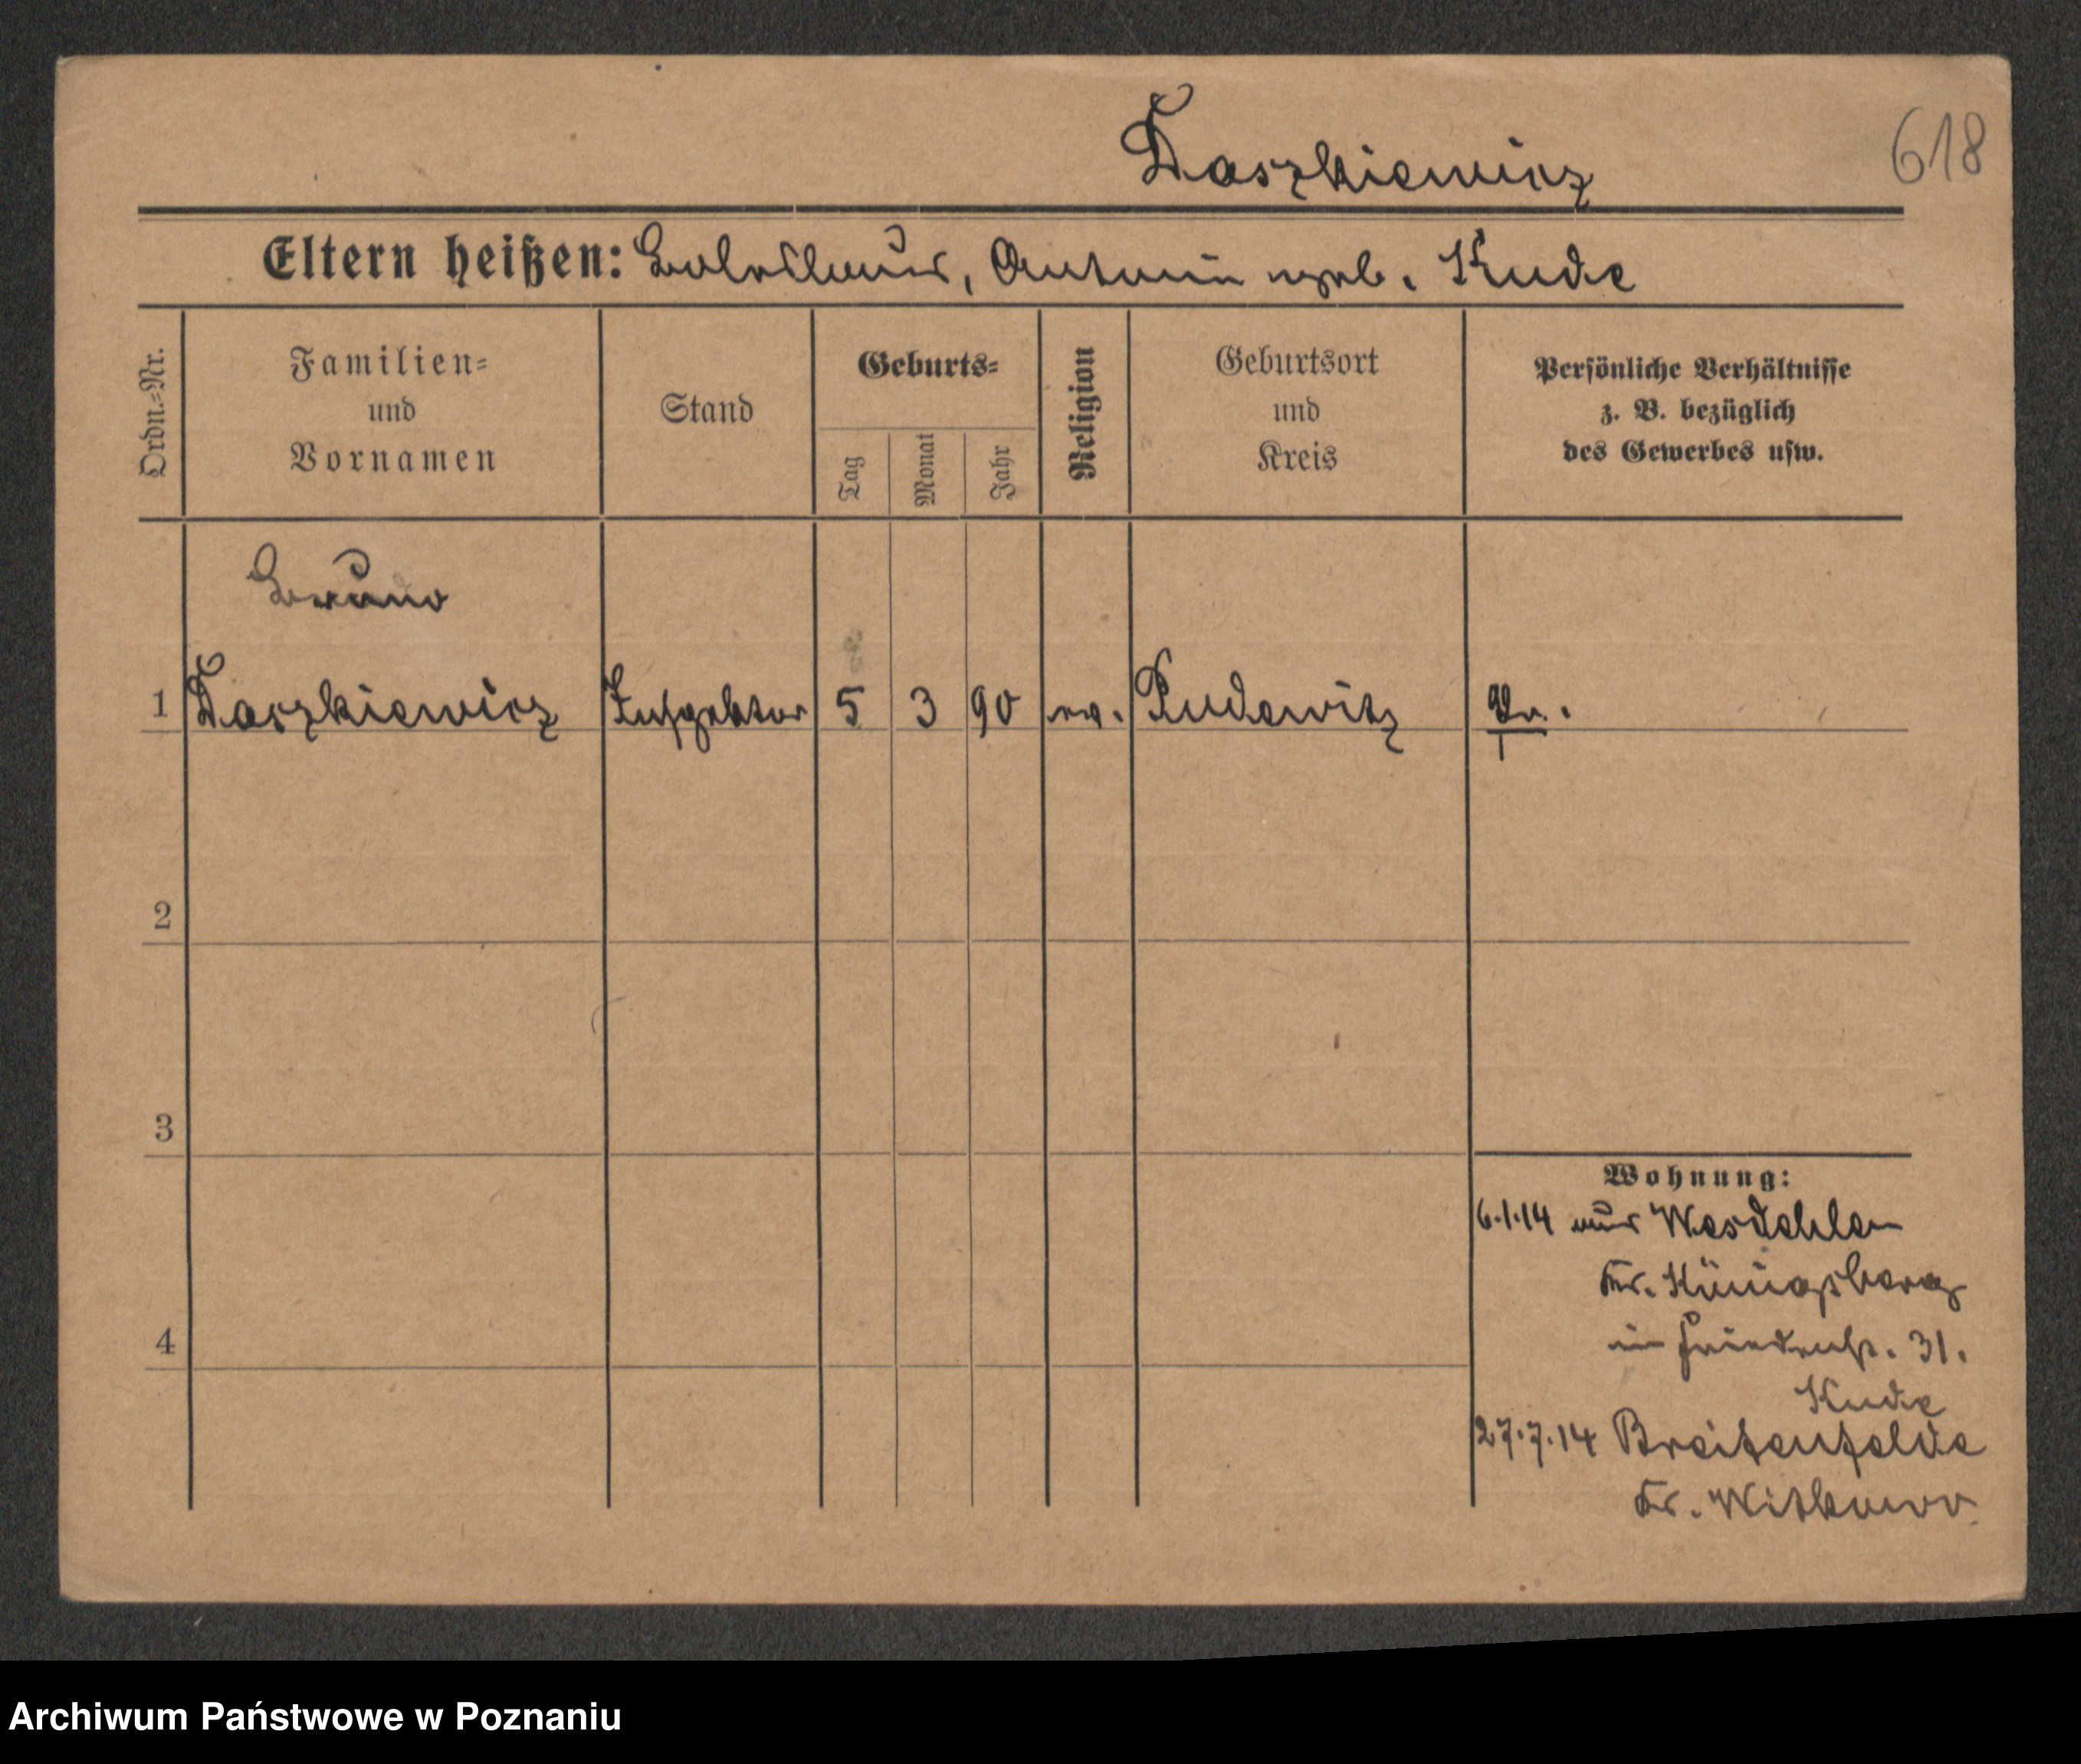 Daszkiewicz
618
Eltern heißen: Boleslaus, Antonie geb. Kude
Ordn.-Nr.
Familien-
und
Vornamen
Stand
Geburts-
Tag
Monat
Jahr
Religion
Geburtsort
und
Kreis
Persönliche Verhältnisse
z. B. bezüglich
des Gewerbes usw.
Bruno
1 Daszkiewicz Inspektor 5 3 90 Pudewitz
2
3
4
Wohnung:
6.1.14
Kr. Königsberg
31.
Kude
27.7.14 Breitenfelde
Kr. Witkowo
Archiwum Państwowe w Poznaniu